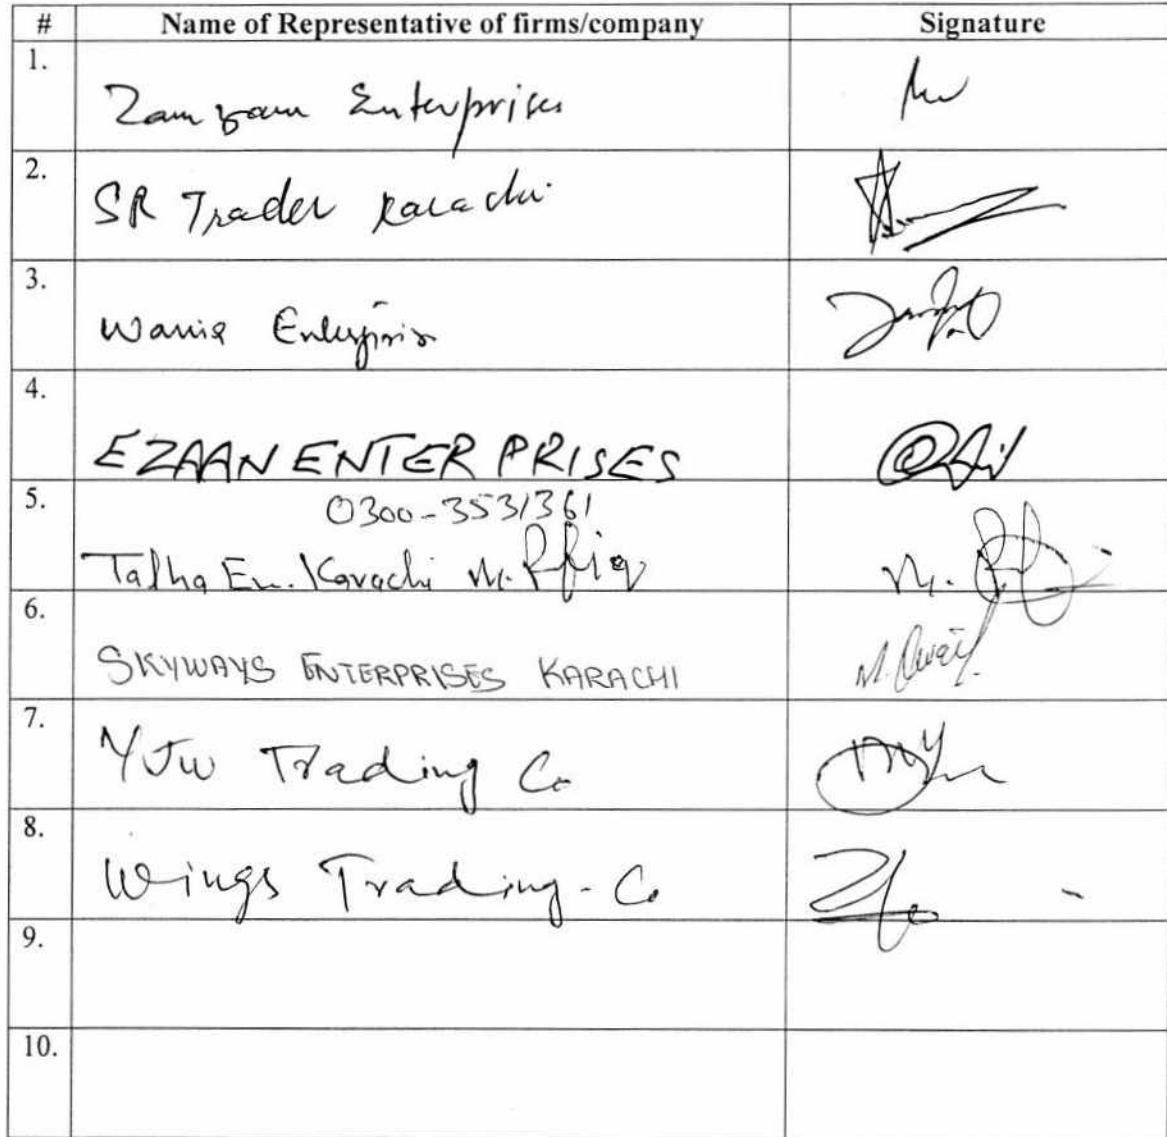 # Name of Representative of firms/company Signature
1. Zam zam Enterprises
2. SR Trader Karachi
3. Wania Enterpris
4. EZAAN ENTERPRISES
5. 0300-3531361
Talha En. Karachi M. Rfiq M.
6. SKYWAYS ENTERPRISES KARACHI M. Owais
7. Trading Co
8. Wings Trading - Co
9.
10.